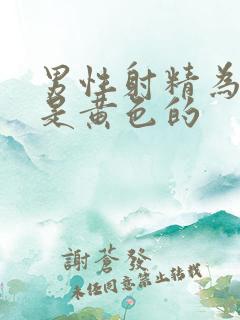 男性射精為
是黃色的
謝蒼發
未任同意禁止轉載